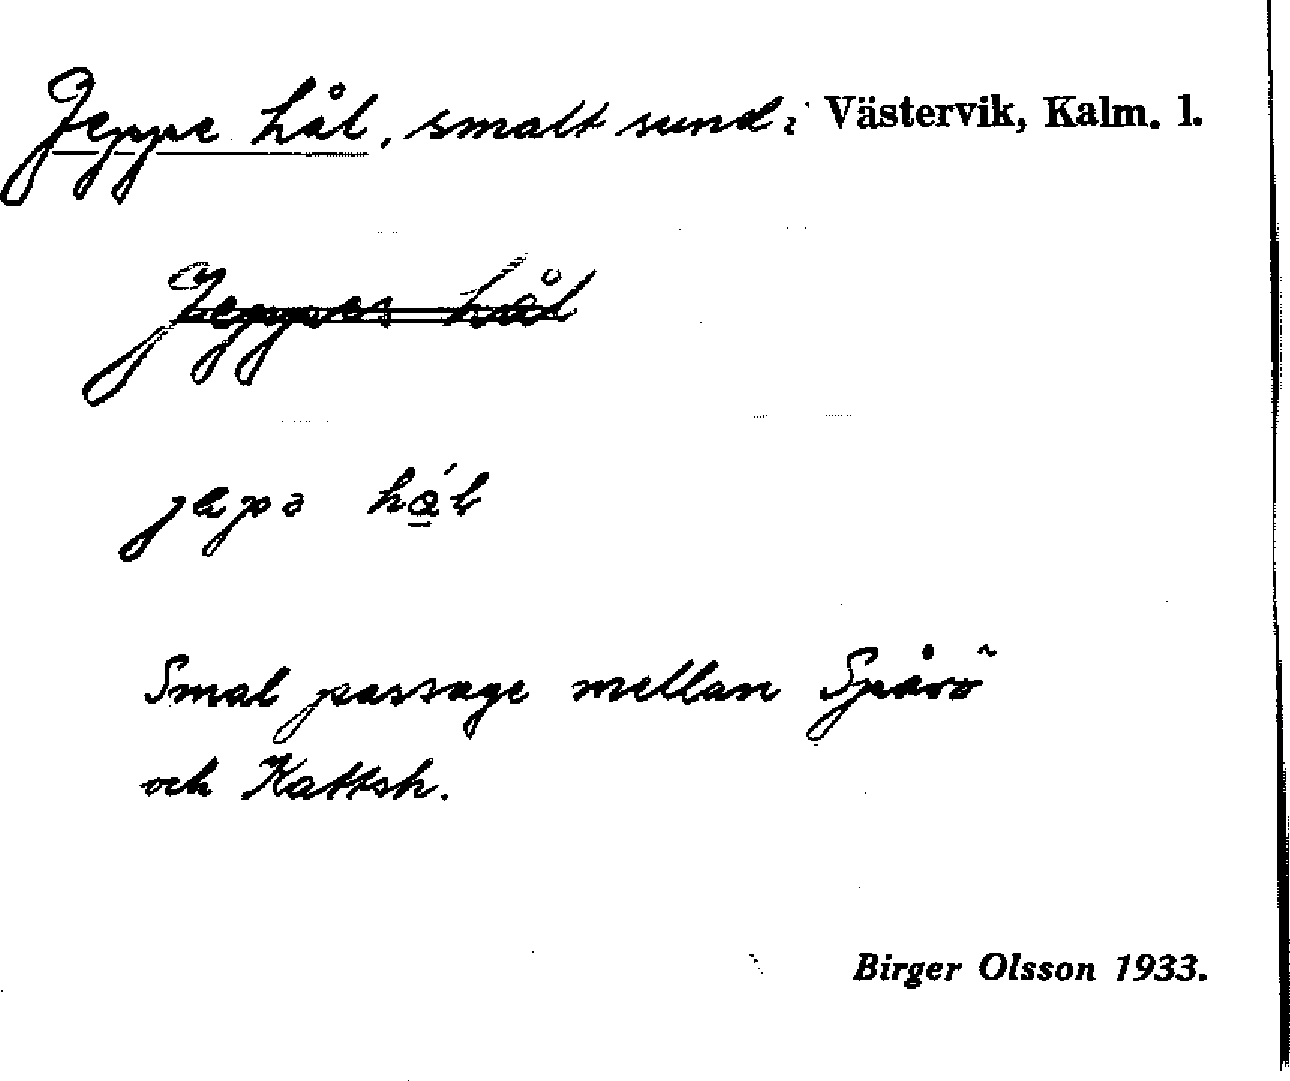 Jeppe hål, smalt sund i Västervik, Kalm. l.
Jeppes hål
jepə hǻl
Smal passage mellan Spårö
och Kattsh.
Birger Olsson 1933.